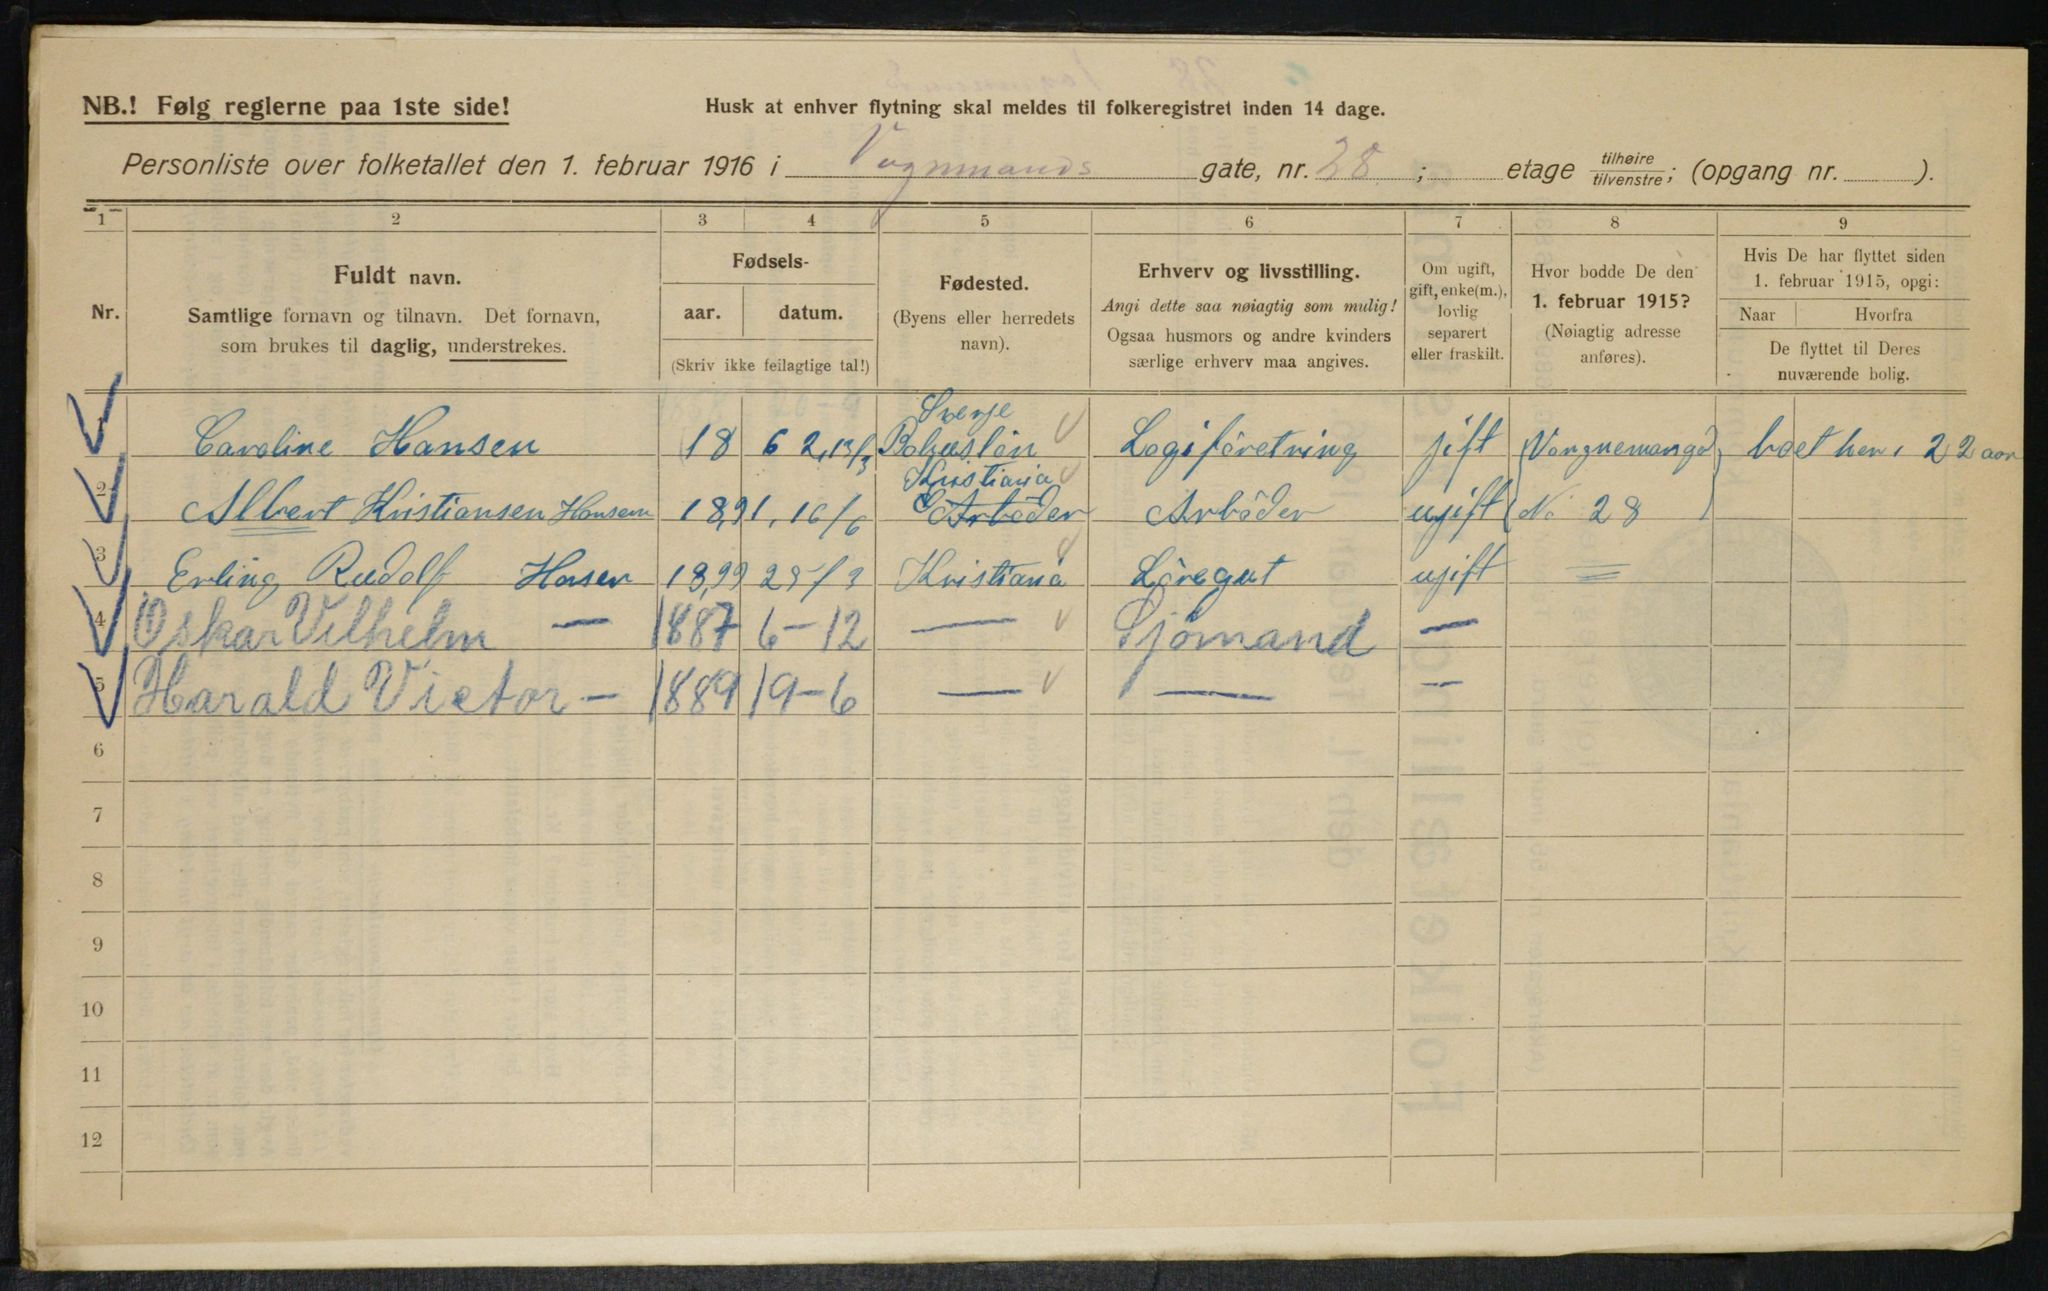 NB.! Følg reglerne paa 1ste side!
Husk at enhver flytning skal meldes til folkeregistret inden 14 dage.
Personliste over folketallet den 1. februar 1916 i Vognmands gate, nr. 28 ; etage tilhøire tilvenstre ; (opgang nr. ).
1 2 3 4 5 6 7 8 9
Nr.
Fuldt navn.
Samtlige fornavn og tilnavn. Det fornavn,
som brukes til daglig, understrekes.
Fødsels-
aar. datum.
(Skriv ikke feilagtige tal!)
Fødested.
(Byens eller herredets
navn).
Erhverv og livsstilling.
Angi dette saa nøiagtig som mulig!
Ogsaa husmors og andre kvinders
særlige erhverv maa angives.
Om ugift,
gift, enke(m.),
lovlig
separert
eller fraskilt.
Hvor bodde De den
1. februar 1915?
(Nøiagtig adresse
anføres).
Hvis De har flyttet siden
1. februar 1915, opgi:
Naar Hvorfra
De flyttet til Deres
nuværende bolig.
Sverje
1 Caroline Hansen 18 62, 13/3 Bohuslän Logiforetning jift Vongnemangd boet her i 22 aar
Kristiania
2 Albert Kristiansen Hansen 18,91, 16/6 Arböder Arböder ujift No 28
3 Erling Rudolf Hansen 18,99 25/3 Kristiania Löregut ujift
4 Oskar Vilhelm — 1887 6-12 — Sjömand —
5 Harald Victor — 1889 19-6 — — —
6
7
8
9
10
11
12